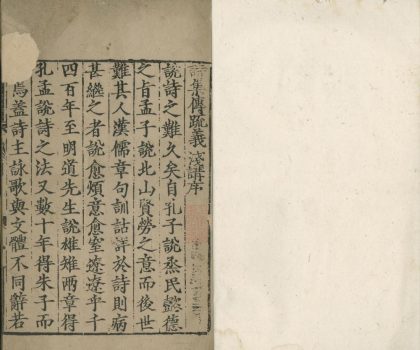 詩集傳疏義淺講序
說詩之難久矣自孔子說烝民懿德
之旨孟子說北山賢勞之意而後世
難其人漢儒章句訓詁詳於詩則病
甚繼之者說愈煩意愈室遼遼乎千
四百年至明道先生說雄雉兩章得
孔孟說詩之法又數十年得朱子而
焉葢詩主詠歌與文體不同辭若